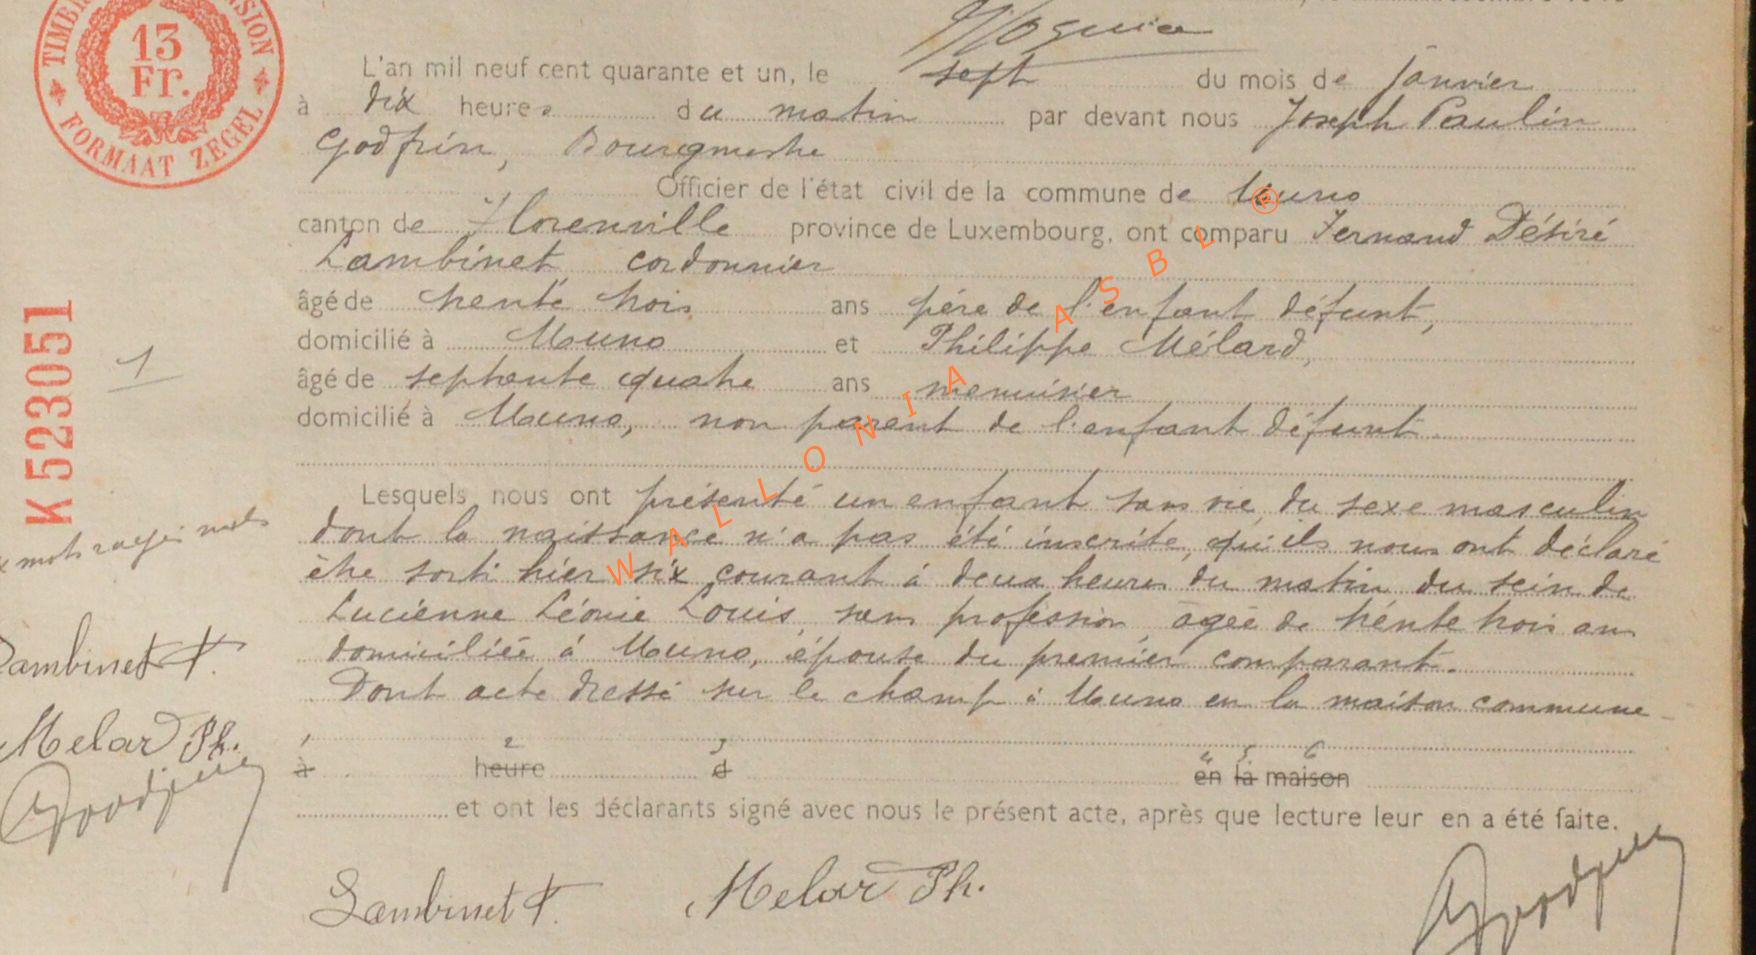 TIMBRE
13
Fr.
FORMAAT ZEGEL
K 523051
1
L'an mil neuf cent quarante et un, le sept du mois de janvier
à dix heures du matin par devant nous Joseph Paulin
Godfrin, Bourgmestre
Officier de l'état civil de la commune de Muno
canton de Florenville province de Luxembourg, ont comparu Fernand Désiré
Lambinet, cordonnier
âgé de trente trois ans père de l'enfant défunt,
domicilié à Muno et Philippe Mélard,
âgé de septante quatre ans menuisier
domicilié à Muno, non parent de l'enfant défunt.
Lesquels nous ont présenté un enfant sans vie, du sexe masculin
dont la naissance n'a pas été inscrite, qu'ils nous ont déclaré
être sorti hier six courant à deux heures du matin du sein de
Lucienne Léonie Louis, sans profession, âgée de trente trois ans
domiciliée à Muno, épouse du premier comparant.
Dont acte dressé sur le champ à Muno en la maison commune
1 2 3 4 5 6
à heure d en la maison
et ont les déclarants signé avec nous le présent acte, après que lecture leur en a été faite.
mots rayés nuls
Lambinet F.
Melar Ph.
Lambinet F. Melar Ph.
WALLONIA ASBL ®